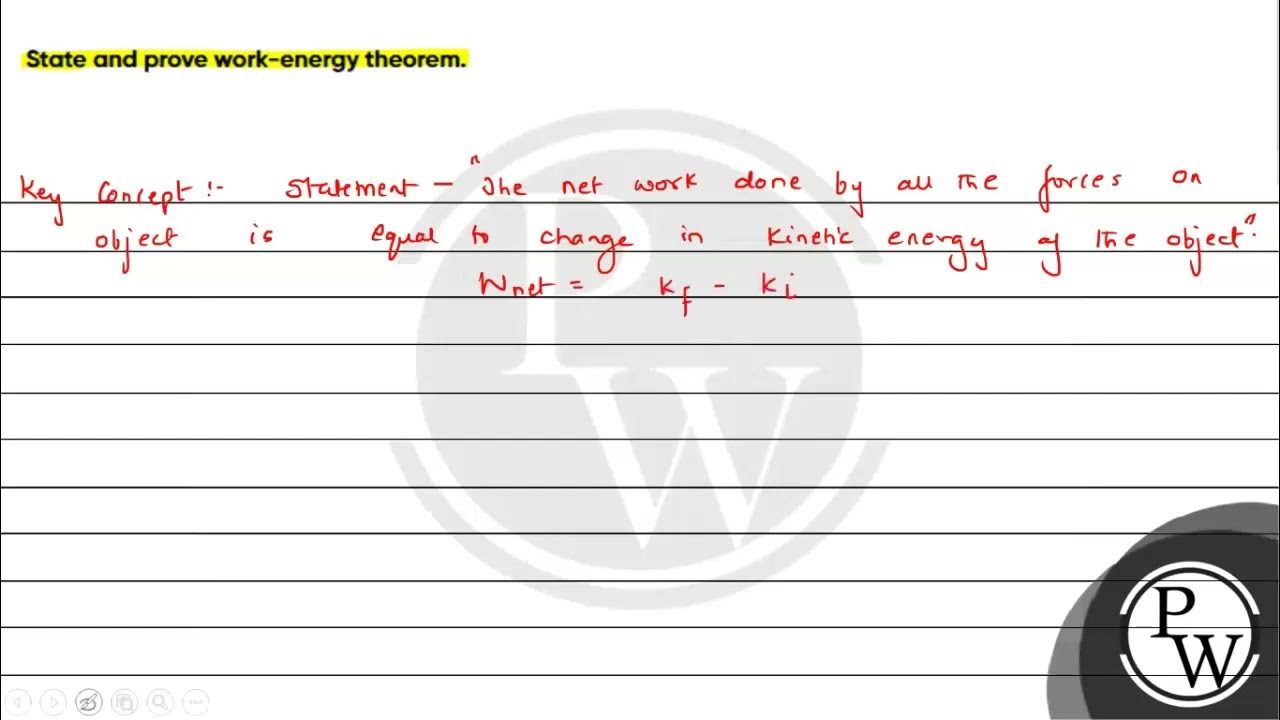 State and prove work-energy theorem.
Key Concept :- Statement - "The net work done by all the forces on
object is equal to change in kinetic energy of the object".
Wnet = kf - ki
P
W
P
W